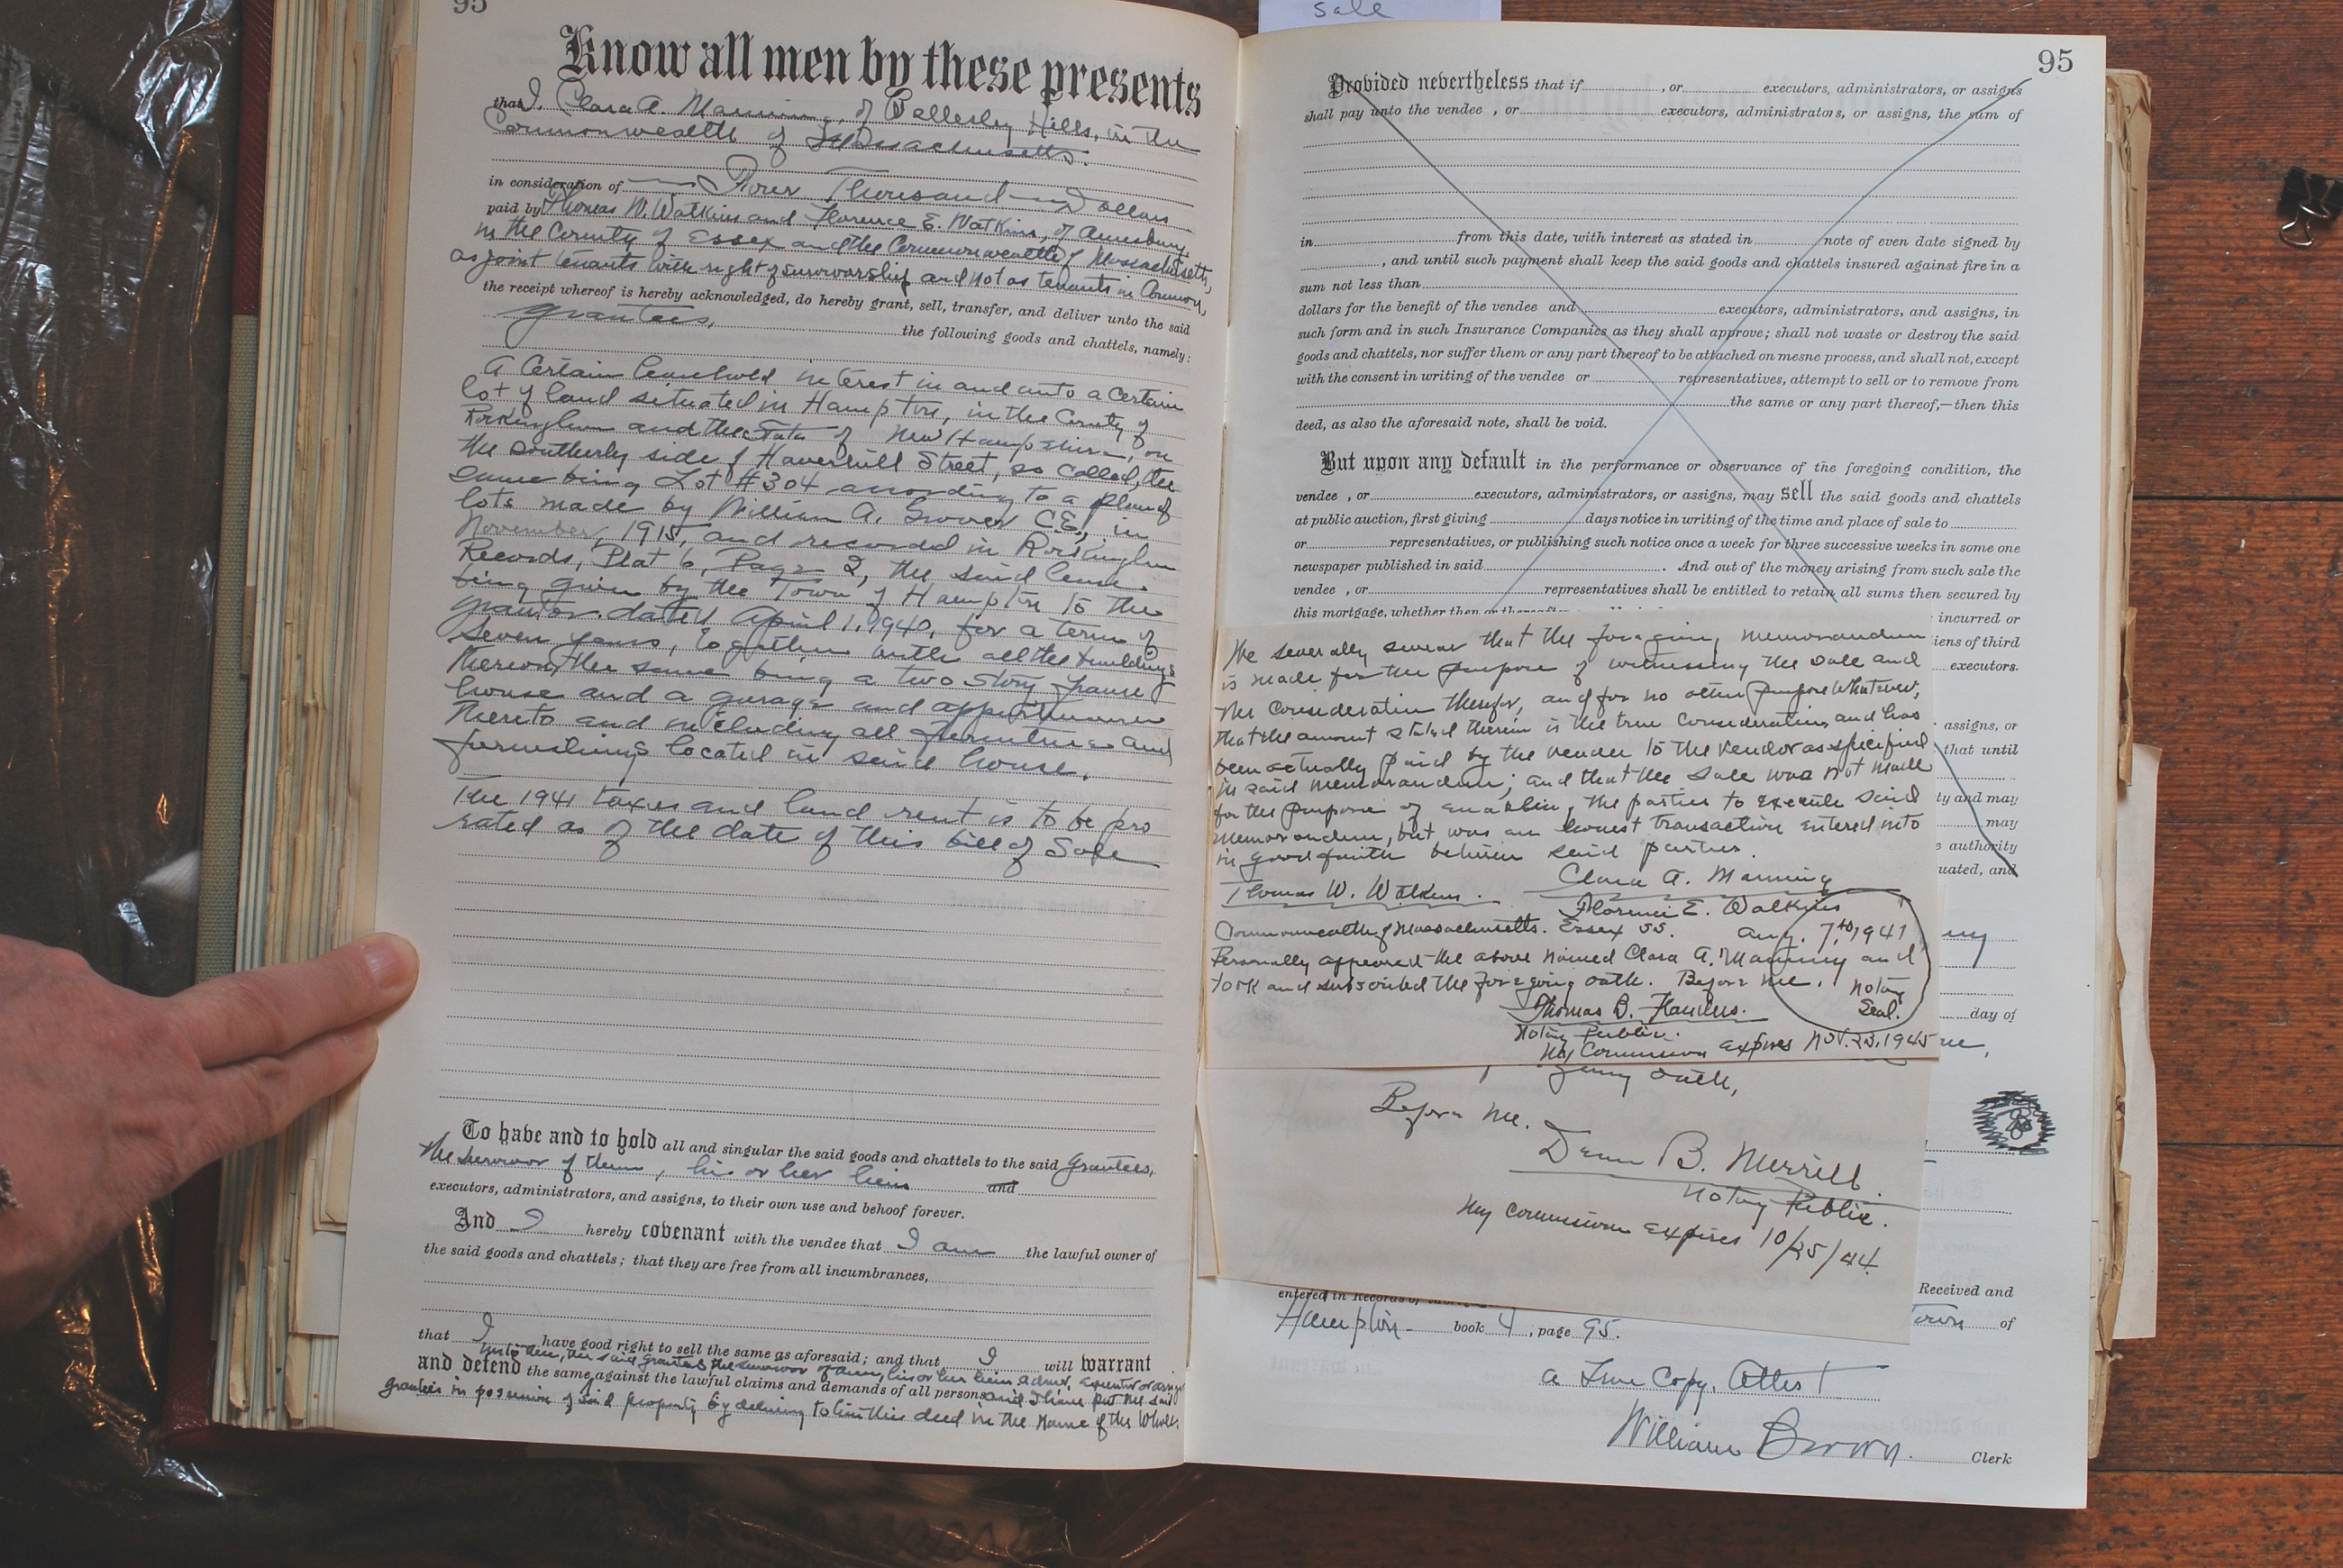 sale
95
Know all men by these presents
that I, Clara A. Manning, of Wellesley Hills, in the
Commonwealth of Massachusetts.
in consideration of Four Thousand Dollars
paid by Thomas W. Watkins and Florence E. Watkins, of Amesbury,
in the County of Essex and the Commonwealth of Massachusetts,
as joint tenants with right of survivorship and not as tenants in Common,
the receipt whereof is hereby acknowledged, do hereby grant, sell, transfer, and deliver unto the said
grantees, the following goods and chattels, namely:
A Certain leasehold interest in and unto a certain
lot of land situated in Hampton, in the County of
Rockingham and the State of New Hampshire, on
the southerly side of Haverhill Street, so called, the
same being Lot #304 according to a plan of
lots made by William A. Grover C.E., in
November, 1915, and recorded in Rockingham
Records, Plat 6, Page 2, the said lease
being given by the Town of Hampton to the
grantor dated April 1, 1940, for a term of
seven years, together with all the buildings
thereon, the same being a two story frame
house and a garage and appurtenances
thereto and including all furniture and
furnishings located in said house.
The 1941 taxes and land rent is to be pro
rated as of the date of this bill of Sale
To have and to hold all and singular the said goods and chattels to the said Grantees,
the survivor of them, his or her heirs and
executors, administrators, and assigns, to their own use and behoof forever.
And I hereby covenant with the vendee that I am the lawful owner of
the said goods and chattels; that they are free from all incumbrances,
that I have good right to sell the same as aforesaid; and that I will warrant
unto them, the said grantees, the survivor of them, his or her heirs, admr, executor or assigns
and defend the same against the lawful claims and demands of all persons and I have put the said
grantees in possession of said property by delivering to him this deed in the name of the whole.
95
Provided nevertheless that if , or executors, administrators, or assigns
shall pay unto the vendee , or executors, administrators, or assigns, the sum of
in from this date, with interest as stated in note of even date signed by
, and until such payment shall keep the said goods and chattels insured against fire in a
sum not less than
dollars for the benefit of the vendee and executors, administrators, and assigns, in
such form and in such Insurance Companies as they shall approve; shall not waste or destroy the said
goods and chattels, nor suffer them or any part thereof to be attached on mesne process, and shall not, except
with the consent in writing of the vendee or representatives, attempt to sell or to remove from
the same or any part thereof,—then this
deed, as also the aforesaid note, shall be void.
But upon any default in the performance or observance of the foregoing condition, the
vendee , or executors, administrators, or assigns, may sell the said goods and chattels
at public auction, first giving days notice in writing of the time and place of sale to
or representatives, or publishing such notice once a week for three successive weeks in some one
newspaper published in said . And out of the money arising from such sale the
vendee , or representatives shall be entitled to retain all sums then secured by
this mortgage, whether then or thereafter
incurred or
iens of third
executors.
assigns, or
that until
ty and may
may
authority
uated, and
We severally swear that the foregoing memorandum
is made for the purpose of witnessing the Sale and
the Consideration thereof, and for no other purpose whatever,
that the amount stated therein is the true Consideration, and has
been actually paid by the vendee to the vendor as specified
in said memorandum; and that the sale was not made
for the purpose of enabling the parties to execute said
memorandum, but was an honest transaction entered into
in good faith between said parties.
Clara A. Manning
Thomas W. Watkins.
Florence E. Watkins
Commonwealth of Massachusetts. Essex SS. Aug. 7th, 1941
Personally appeared the above named Clara A. Manning and
took and subscribed the foregoing oath. Before me,
Notary
Seal.
Thomas B. Flanders.
Notary Public.
My Commission expires Nov. 23, 1945
day of
going oath,
Before me.
B. Merrill.
Notary Public.
My commission expires 10/25/44.
Received and
entered in Records of
Town of
Hampton book 4, page 95.
A True Copy, Attest
William Brown. Clerk